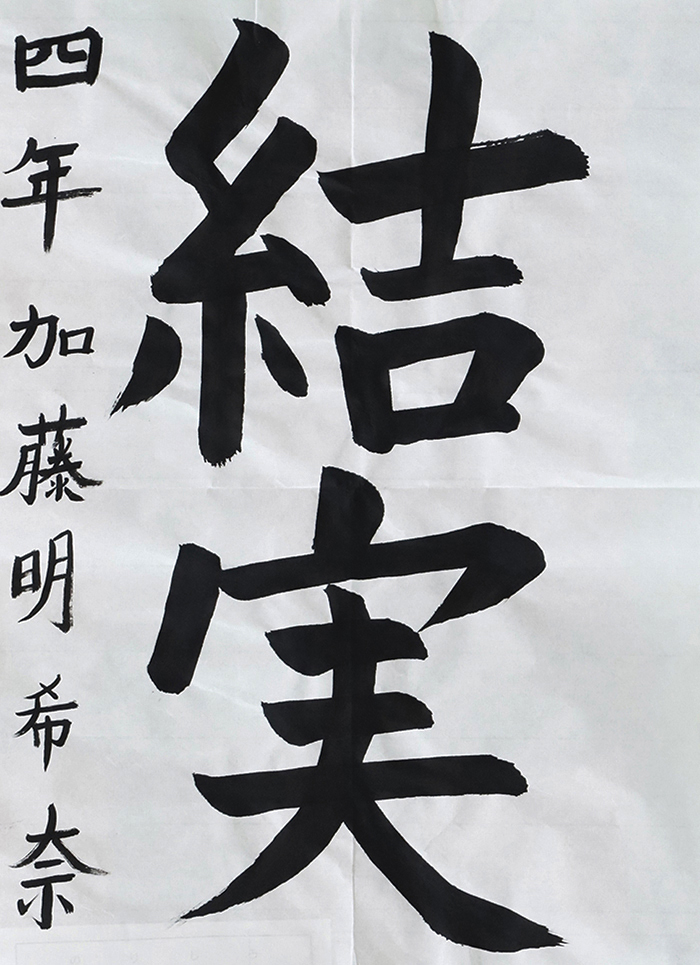 結実
四年加藤明希奈